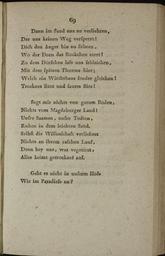 69
Dann im Sand uns zu verlieren,
Der uns keinen Weg versperrt!
Dich den Anger hin zu führen,
Wo der Dorn das Röckchen zerrt!
Zu dem Dörfchen laß uns schleichen,
Mit dem spitzen Thurme hier;
Welch ein Wirthshaus sonder gleichen!
Trocknes Brot und saures Bier!
Sagt mir nichts von gutem Boden,
Nichts vom Magdeburger Land!
Unsre Saamen, unsre Todten,
Ruhen in dem leichten Sand.
Selbst die Wissenschaft verlieret
Nichts an ihrem raschen Lauf,
Denn bey uns, was vegetiret,
Alles keimt getrocknet auf.
Geht es nicht in unserm Hofe
Wie im Paradiese zu?